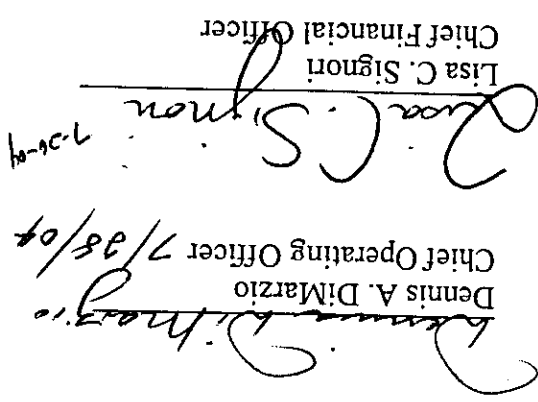 Dennis DiMarzio
Dennis A. DiMarzio
Chief Operating Officer 7/28/04
Lisa C. Signori 7-26-04
Lisa C. Signori
Chief Financial Officer